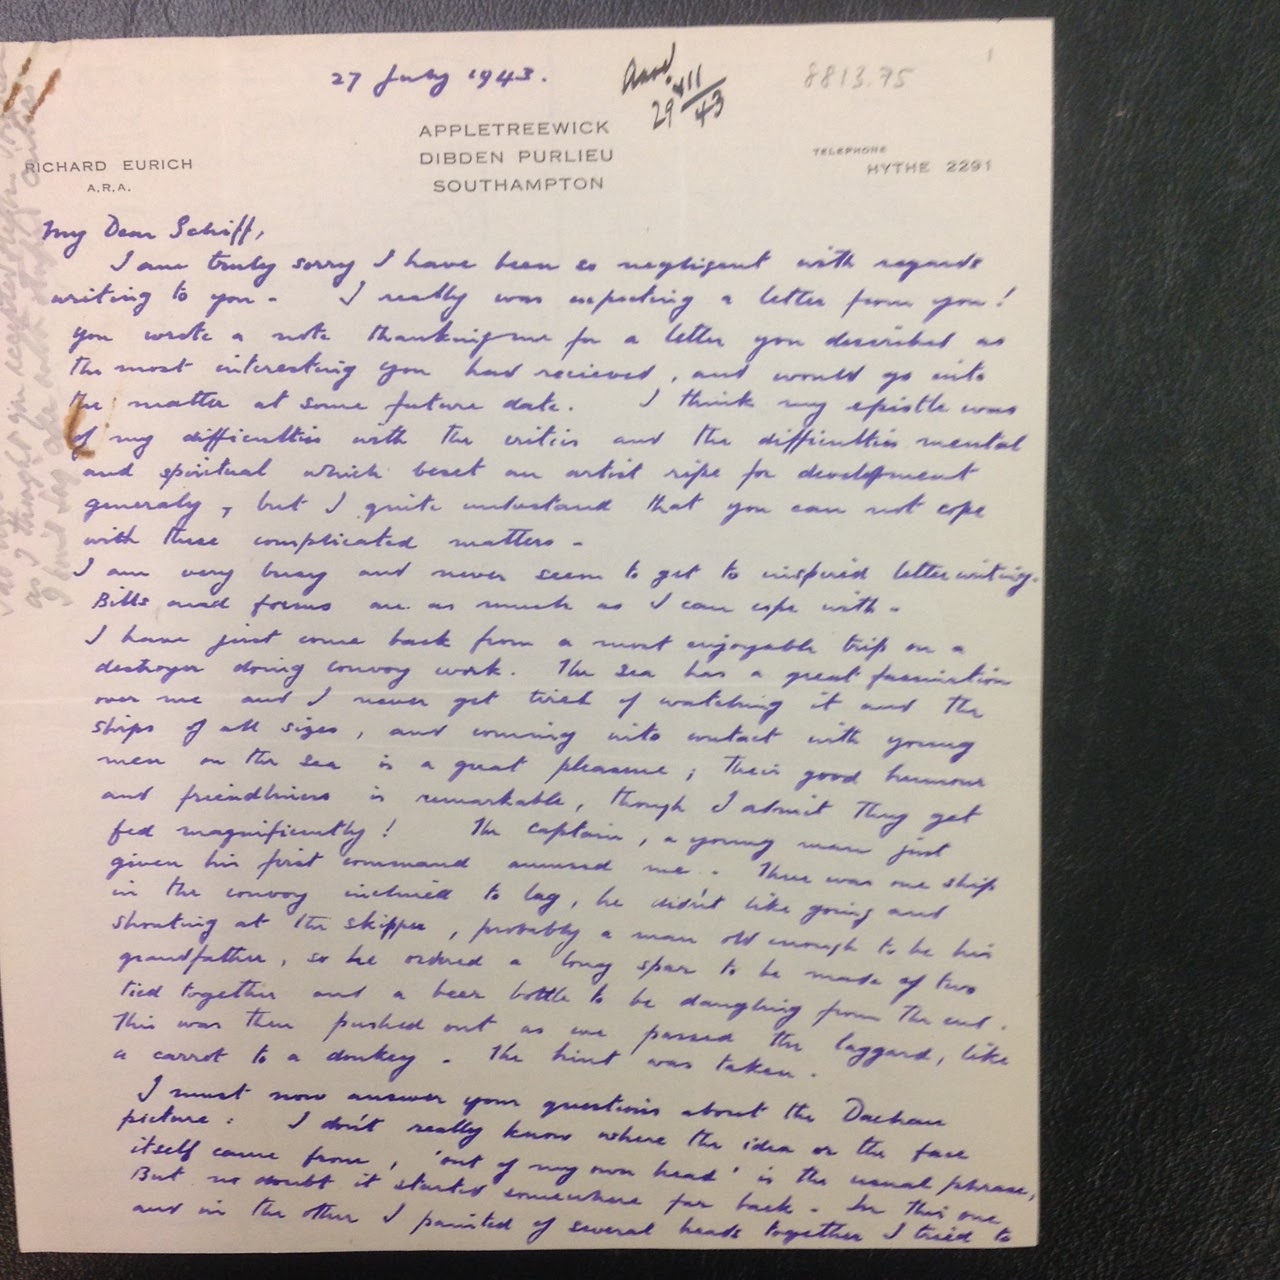 27 July 1943.
29 VII/43
8813.75
1
APPLETREEWICK
DIBDEN PURLIEU
SOUTHAMPTON
RICHARD EURICH
A.R.A.
TELEPHONE
HYTHE 2291
My Dear Schiff,
I am truly sorry I have been so negligent with regards
writing to you - I really was expecting a letter from you!
You wrote a note thanking me for a letter you described as
the most interesting you had recieved, and would go into
the matter at some future date. I think my epistle was
of my difficulties with the critics and the difficulties mental
and spiritual which beset an artist ripe for development
generaly, but I quite understand that you can not cope
with these complicated matters -
I am very busy and never seem to get to inspired letter writing.
Bills and forms are as much as I can cope with -
I have just come back from a most enjoyable trip on a
destroyer doing convoy work. The sea has a great fascination
over me and I never get tired of watching it and the
ships of all sizes, and coming into contact with young
men on the sea is a great pleasure; their good humour
and friendliness is remarkable, though I admit they get
fed magnificently! The captain, a young man just
given his first command amused me.. There was one ship
in the convoy inclined to lag, he didn't like going and
shouting at the skipper, probably a man old enough to be his
grandfather, so he ordered a long spar to be made of two
tied together and a beer bottle to be dangling from the end.
This was then pushed out as we passed the laggard, like
a carrot to a donkey - The hint was taken.
I must now answer your questions about the Dachau
picture: I don't really know where the idea or the face
itself came from, 'out of my own head' is the usual phrase,
But no doubt it started somewhere far back - In this one
and in the other I painted of several heads together I tried to
as I thought you